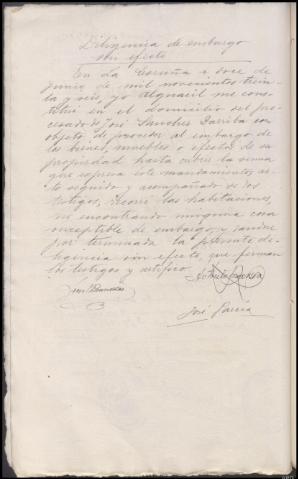 Diligencia de embargo
sin efecto
En La Coruña a doce de
junio de mil novecientos trein
ta y seis, yo Alguacil me cons
tituí en el domicilio del pro
cesado José Sanchez Dariba con
objeto de proceder al embargo de
los bienes, muebles o efectos de su
propiedad hasta cubrir la suma
que expresa este mandamiento, ac
to seguido y acompañado de dos
testigos, recorrí las habitaciones,
no encontrando ninguna cosa
susceptible de embargo, y dando
por terminada la presente di
ligencia sin efecto, que firman
los testigos y certifico.
José García